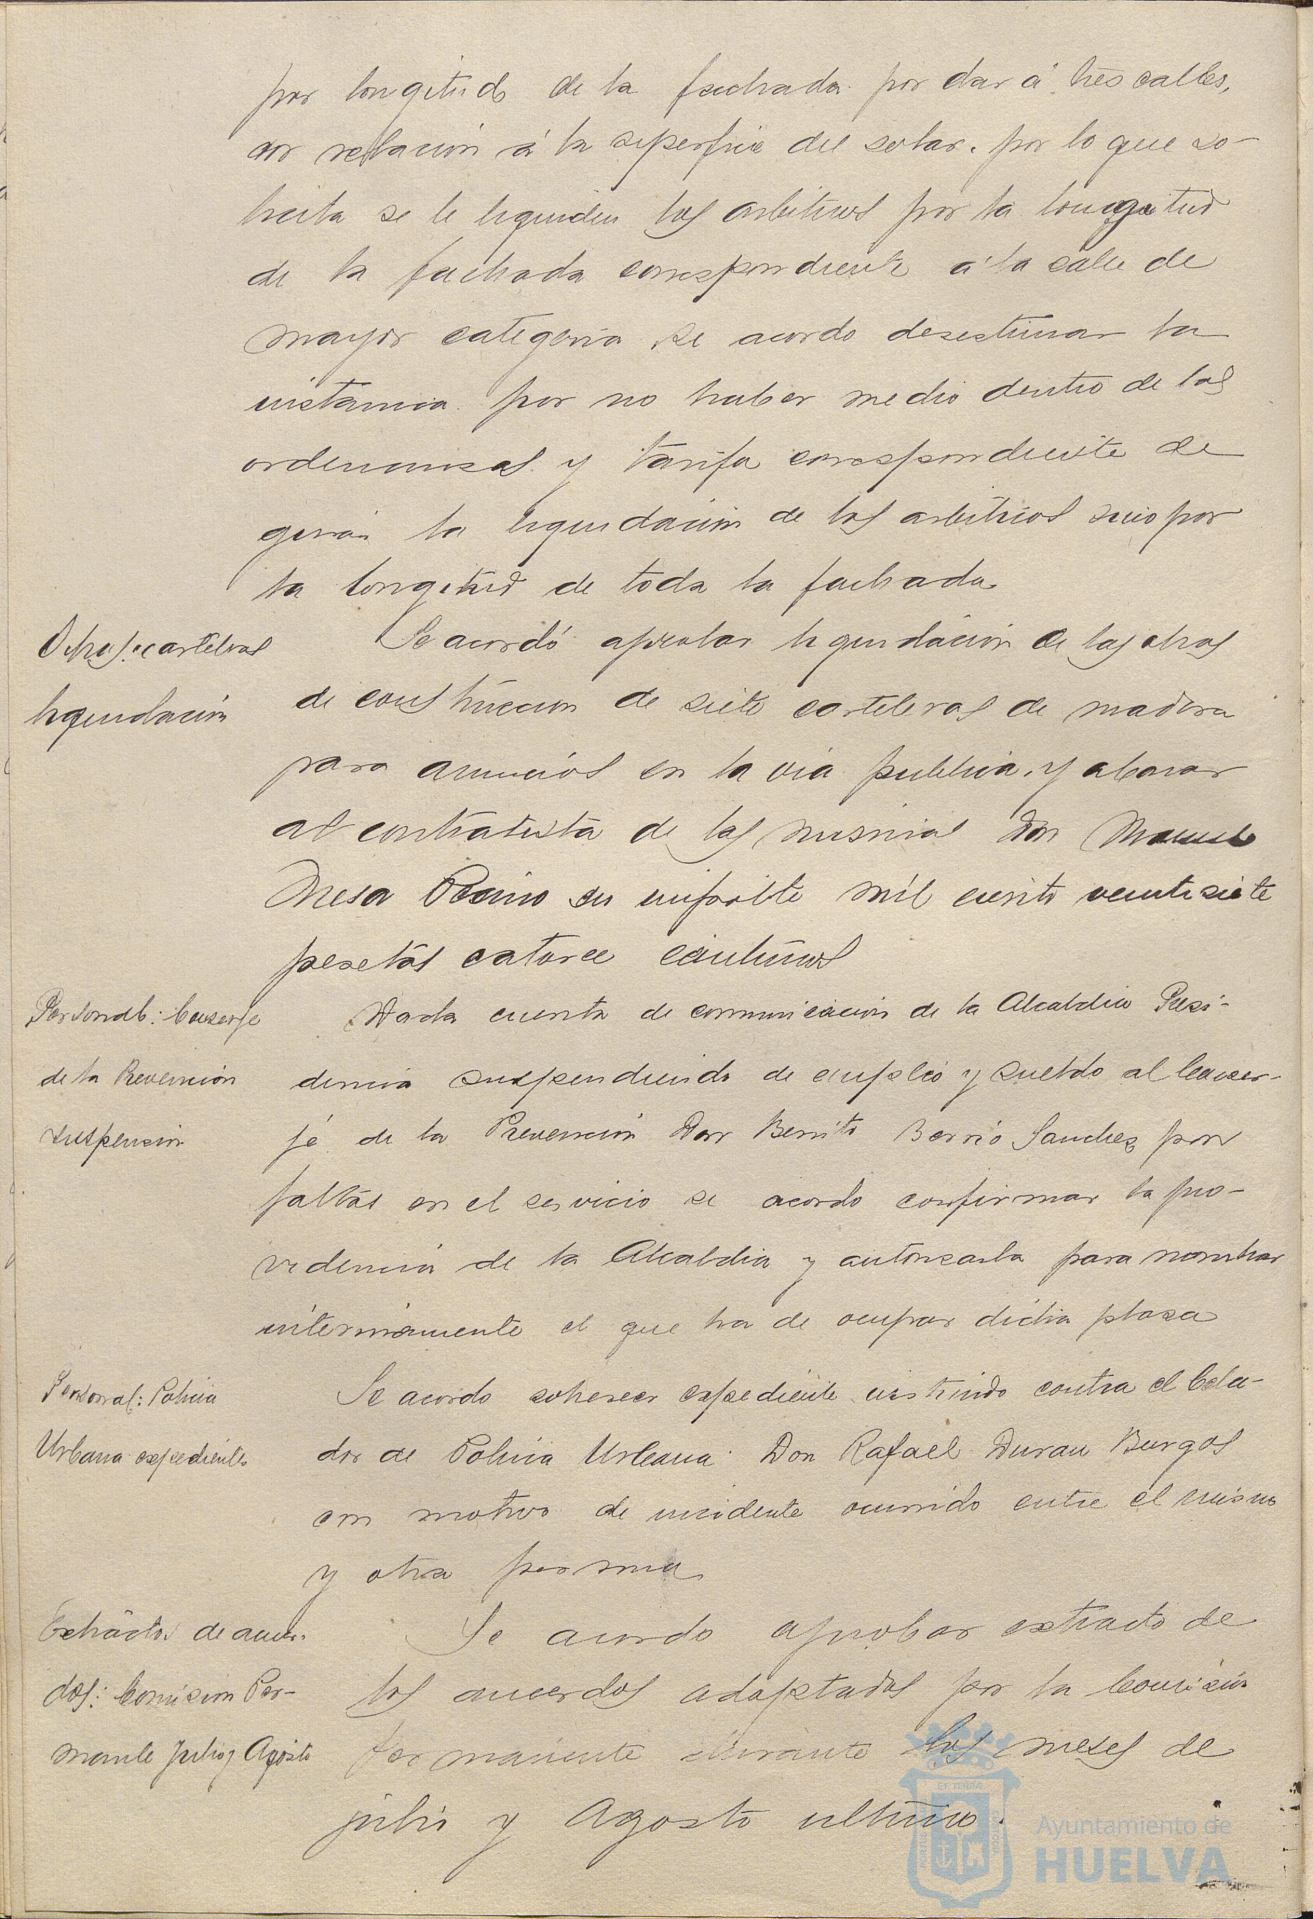 por longitud de la fachada por dar á tres calles,
con relacion á la superficie del solar, por lo que so-
licita se le liquiden los arbitrios por la longitud
de la fachada correspondiente á la calle de
mayor categoria se acordo desestimar la
instancia por no haber medio dentro de las
ordenanzas y tarifa correspondiente de
girar la liquidacion de los arbitrios sino por
la longitud de toda la fachada
carteleras
liquidación
Se acordó aprobar liquidación de las obras
de construccion de siete carteleras de madera
para anuncios en la via publica, y abonar
al contratista de las mismas Don Manuel
Mesa su importe mil ciento veintisiete
pesetas catorce centimos
Personal: Conserje
de la Prevencion
suspension
Dada cuenta de comunicacion de la Alcaldia Presi-
dencia suspendiendo de empleo y sueldo al Conser-
je de la Prevencion Don Benito Berrio Sanchez por
faltas en el servicio se acordo confirmar la pro-
videncia de la Alcaldia y autorizarla para nombrar
interinamente el que ha de ocupar dicha plaza
Personal: Policia
Urbana expediente
Se acordo sobreseer expediente instruido contra el Cela-
dor de Policia Urbana Don Rafael Duran Burgos
con motivo de incidente ocurrido entre el mismo
y otra persona
Extracto de acuer-
dos: Comision Per-
manente Julio y Agosto
Se acordo aprobar extracto de
los acuerdos adoptados por la Comisión
Permanente durante los meses de
julio y Agosto ultimo.
Ayuntamiento de
HUELVA